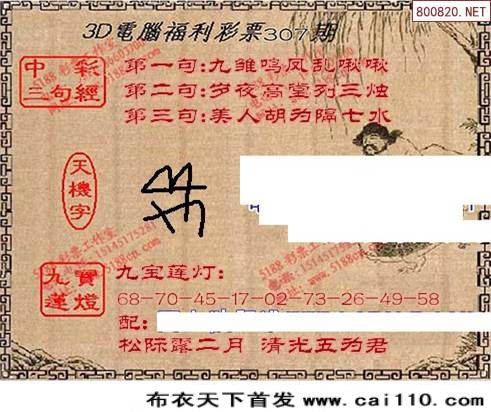 800820.NET
3D電腦福利彩票307期
中彩
三句經
第一句:九雏鸣凤乱啾啾
第二句:岁夜高堂列三烛
第三句:美人胡为隔七水
天機字
九寶
蓮燈
九宝莲灯:
68-70-45-17-02-73-26-49-58
配:
松际露二月 清光五为君
布衣天下首发 www.cai110.com